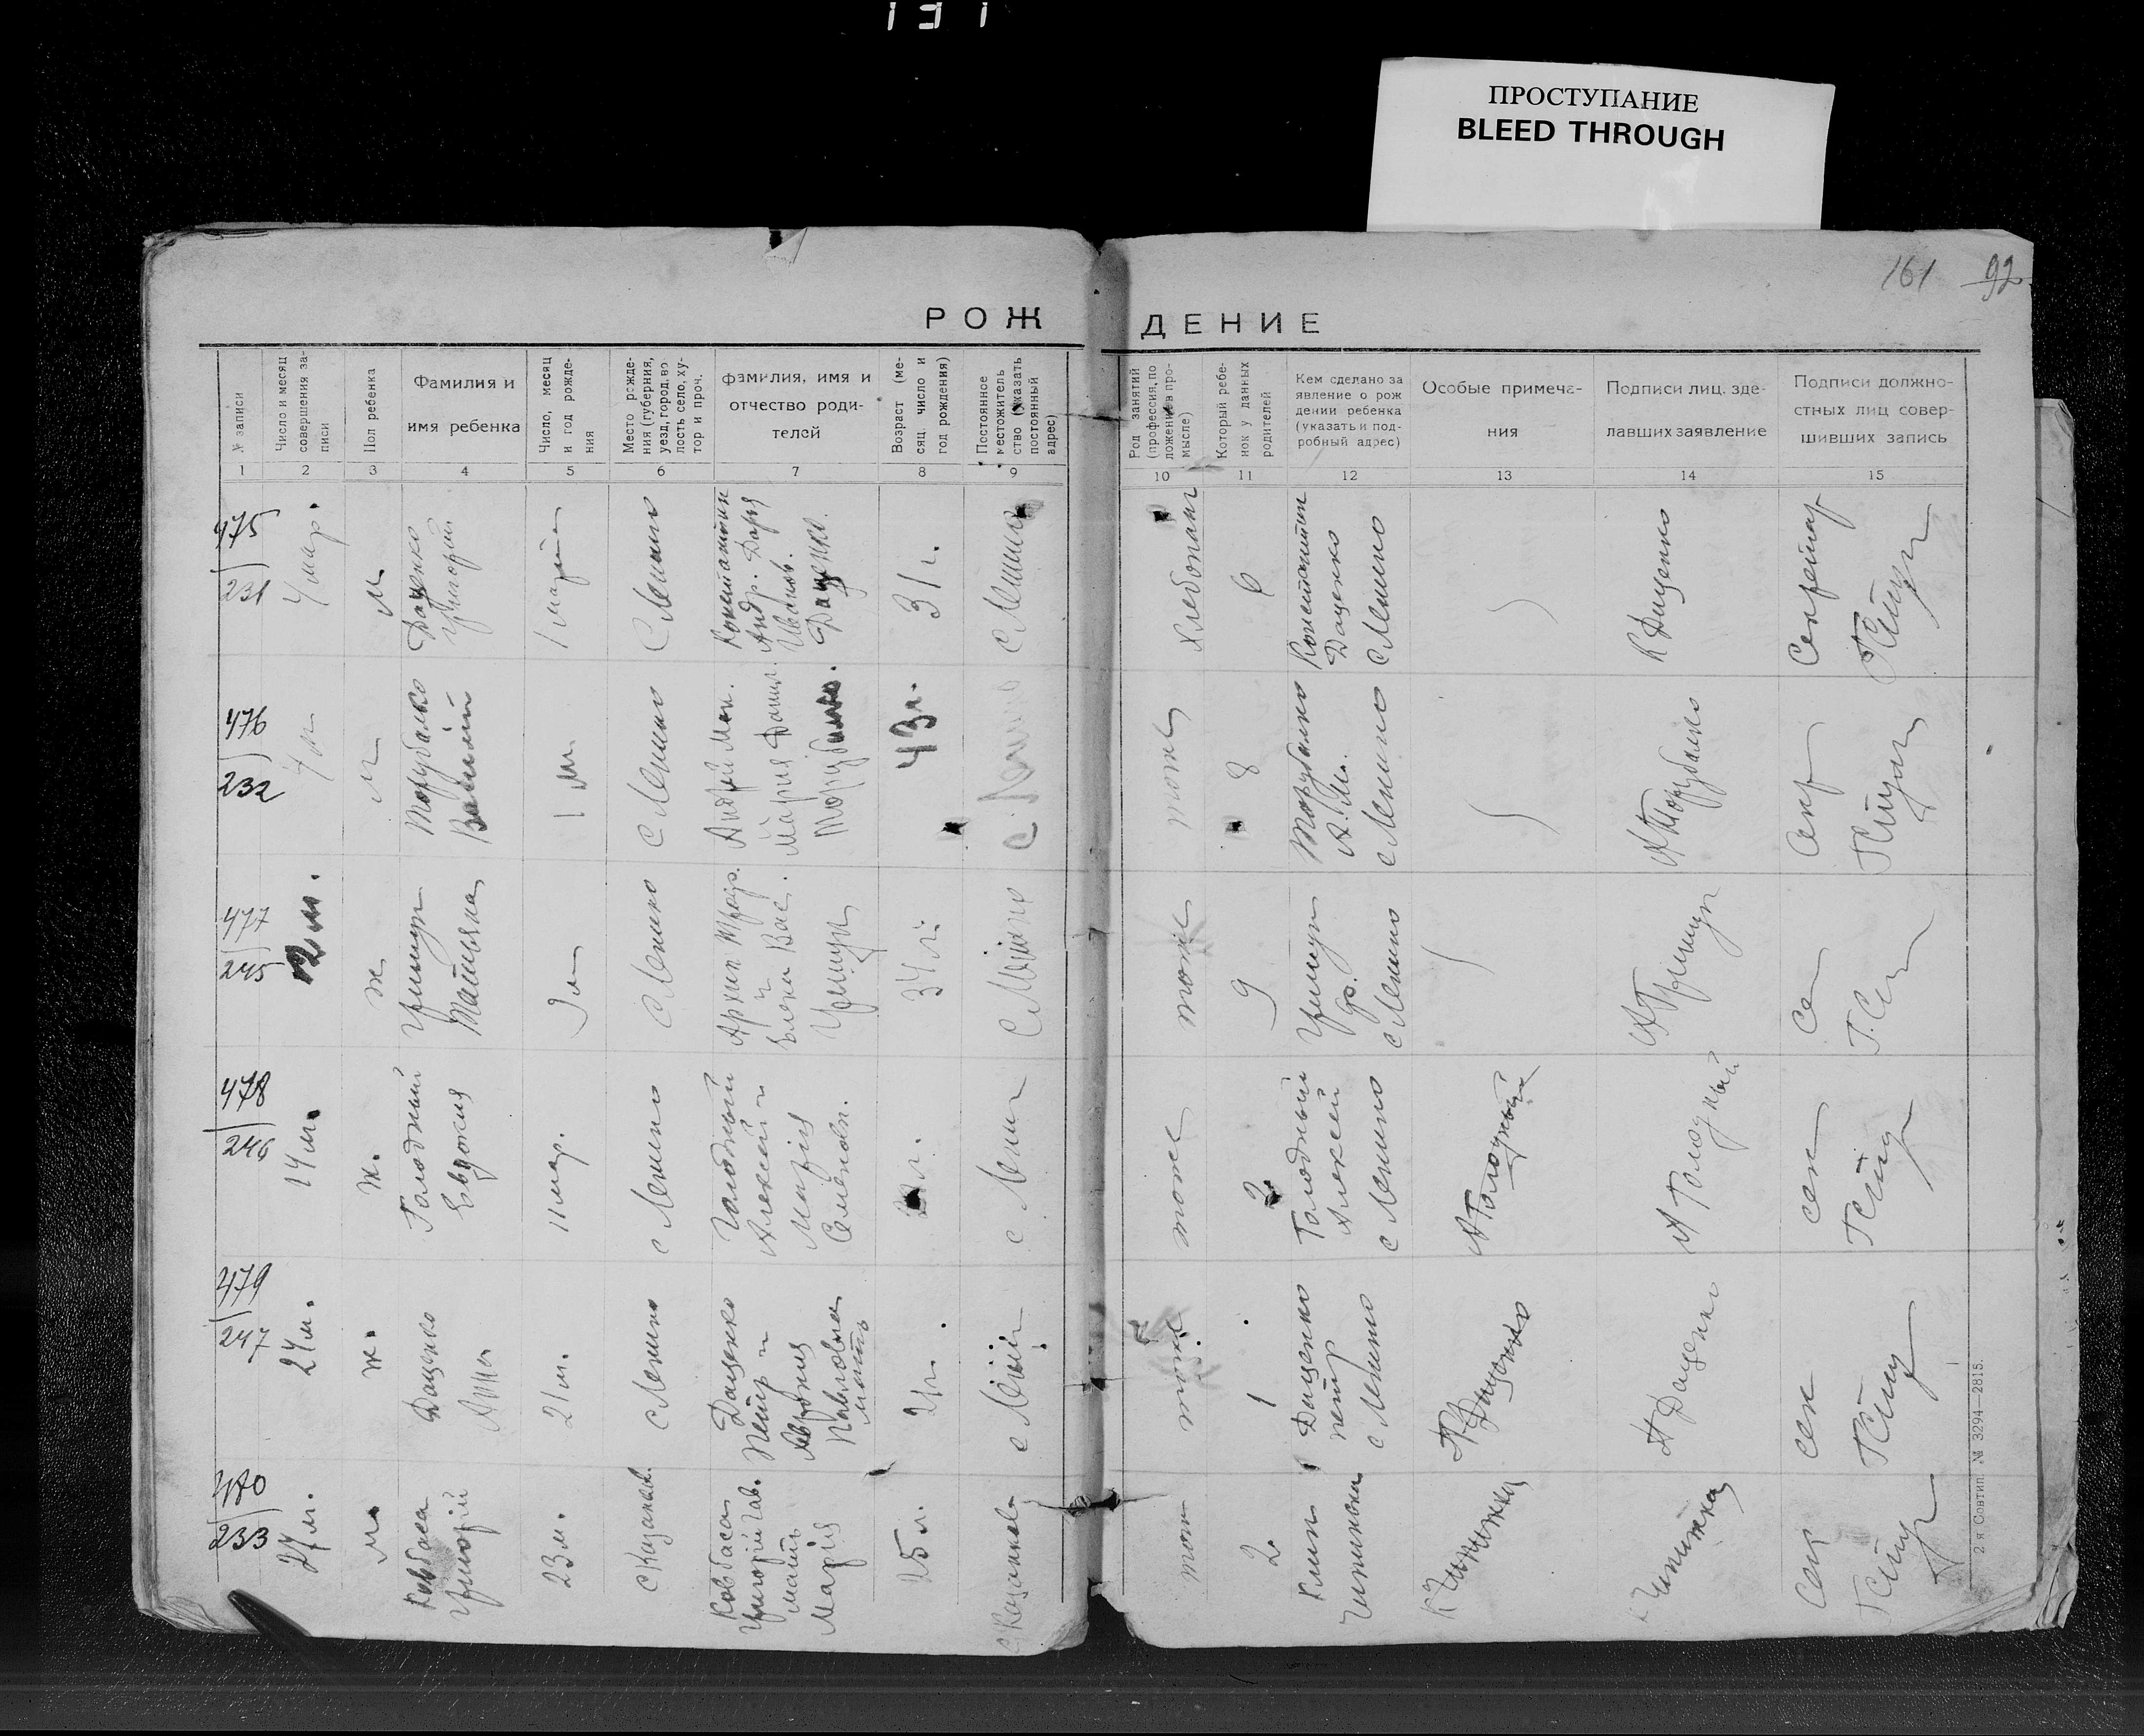 ПРОСТУПАНИЕ
BLEED THROUGH
161 92
РОЖ
ДЕНИЕ
№ записи
Число и месяц
совершения за-
писи
Пол ребенка
Фамилия и
имя ребенка
Число, месяц
и год рожде-
ния
Место рожде-
ния (губерния,
уезд, город, во
лость село, ху-
тор и проч.
фамилия, имя и
отчество роди-
телей
Возраст (ме-
сяц, число и
год рождения)
Постоянное
местожитель
ство (указать
постоянный
адрес)
Род занятий
(профессия, по
ложение в про-
мысле)
Который ребе-
нок у данных
родителей
Кем сделано за
явление о рож
дении ребенка
(указать и под-
робный адрес)
Особые примеча-
ния
Подписи лиц, зде-
лавших заявление
Подписи должно-
стных лиц совер-
шивших запись
1 2 3 4 5 6 7 8 9
10 11 12 13 14 15
475
231
4 мар.
м
Даценко
Григорій
1 марта
с Ленино
Константин
Андр. Дарья
Иванов.
Даценко.
31 г.
с Ленино
Хлебопаш
6
Константин
Даценко
с Ленино
К Даценко
Секретар
476
232
4 м
м
Торубалко
1 м.
с Ленино
Андрей
Мария Данил.
Торубалко.
43 г.
с Ленино
тоже
8
Торубалко
А. М.
с Ленино
А Торубалко
Секр
477
245
12 м.
ж
Татьяна
9 м
с Ленино
Архип
и
Елена Вас.
34 г.
с Ленино
тоже
9
с Ленино
Се
478
246
14 м.
ж.
Голодный
Евдокия
11 мар.
с Ленино
Голодный
Алексей и
Марія
Семенов.
с Ленин
тоже
2
Голодный
Алексей
с Ленино
А Голодный
А Голодный
сек
479
247
24 м.
ж.
Даценко
Анна
21 м.
с Ленино
Даценко
Петр и
Павловна
мать
с Ленин
тоже
1
Даценко
петр
с Ленино
П Даценко
П Даценко
сек
480
233
27 м.
м.
Ковбаса
Григорій
23 м.
Ковбаса
Григорій Гав.
мать
Марія
25 л.
тоже
2
Клим
Сек
2 я Совтип. № 3294—2815.